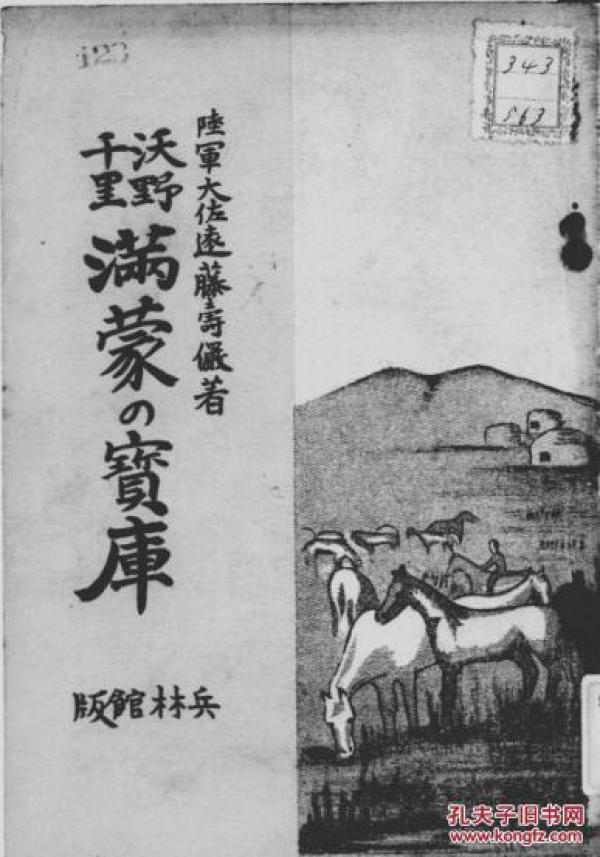 123
343
563
陸軍大佐遠藤壽儼著
沃野
千里
満蒙の寶庫
兵林館版
孔夫子旧书网
www.kongfz.com